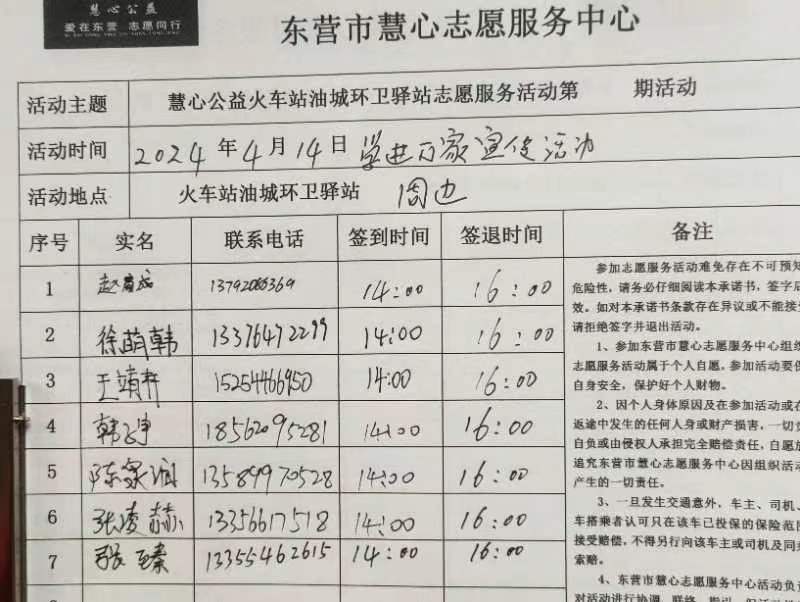 慧心公益
爱在东营 志愿同行
东营市慧心志愿服务中心
活动主题 慧心公益火车站油城环卫驿站志愿服务活动第 期活动
活动时间 2024年4月14日 学进万家宣促活动
活动地点 火车站油城环卫驿站 周边
序号 实名 联系电话 签到时间 签退时间 备注
1 赵 13792086369 14:00 16:00
2 徐萌韩 13376472299 14:00 16:00
3 王靖 15254466950 14:00 16:00
4 韩 18562095281 14:00 16:00
5 陈家 13589970528 14:00 16:00
6 张凌赫 13356617518 14:00 16:00
7 张臻 13355462615 14:00 16:00
参加志愿服务活动难免存在不可预知
危险性，请务必仔细阅读本承诺书，签字后
效。如对本承诺书条款存在异议或不能接
请拒绝签字并退出活动。
1、参加东营市慧心志愿服务中心组织
志愿服务活动属于个人自愿，参加活动要保
自身安全，保护好个人财物。
2、因个人身体原因及在参加活动或在
返途中发生的任何人身或财产损害，一切
自负或由侵权人承担完全赔偿责任，自愿放
追究东营市慧心志愿服务中心因组织活动
产生的一切责任。
3、一旦发生交通意外，车主、司机、
车搭乘者认可只在该车已投保的保险范
接受赔偿，不得另行向该车主或司机及同
索赔。
4、东营市慧心志愿服务中心活动负
对活动进行协调、联络、指引，但活动